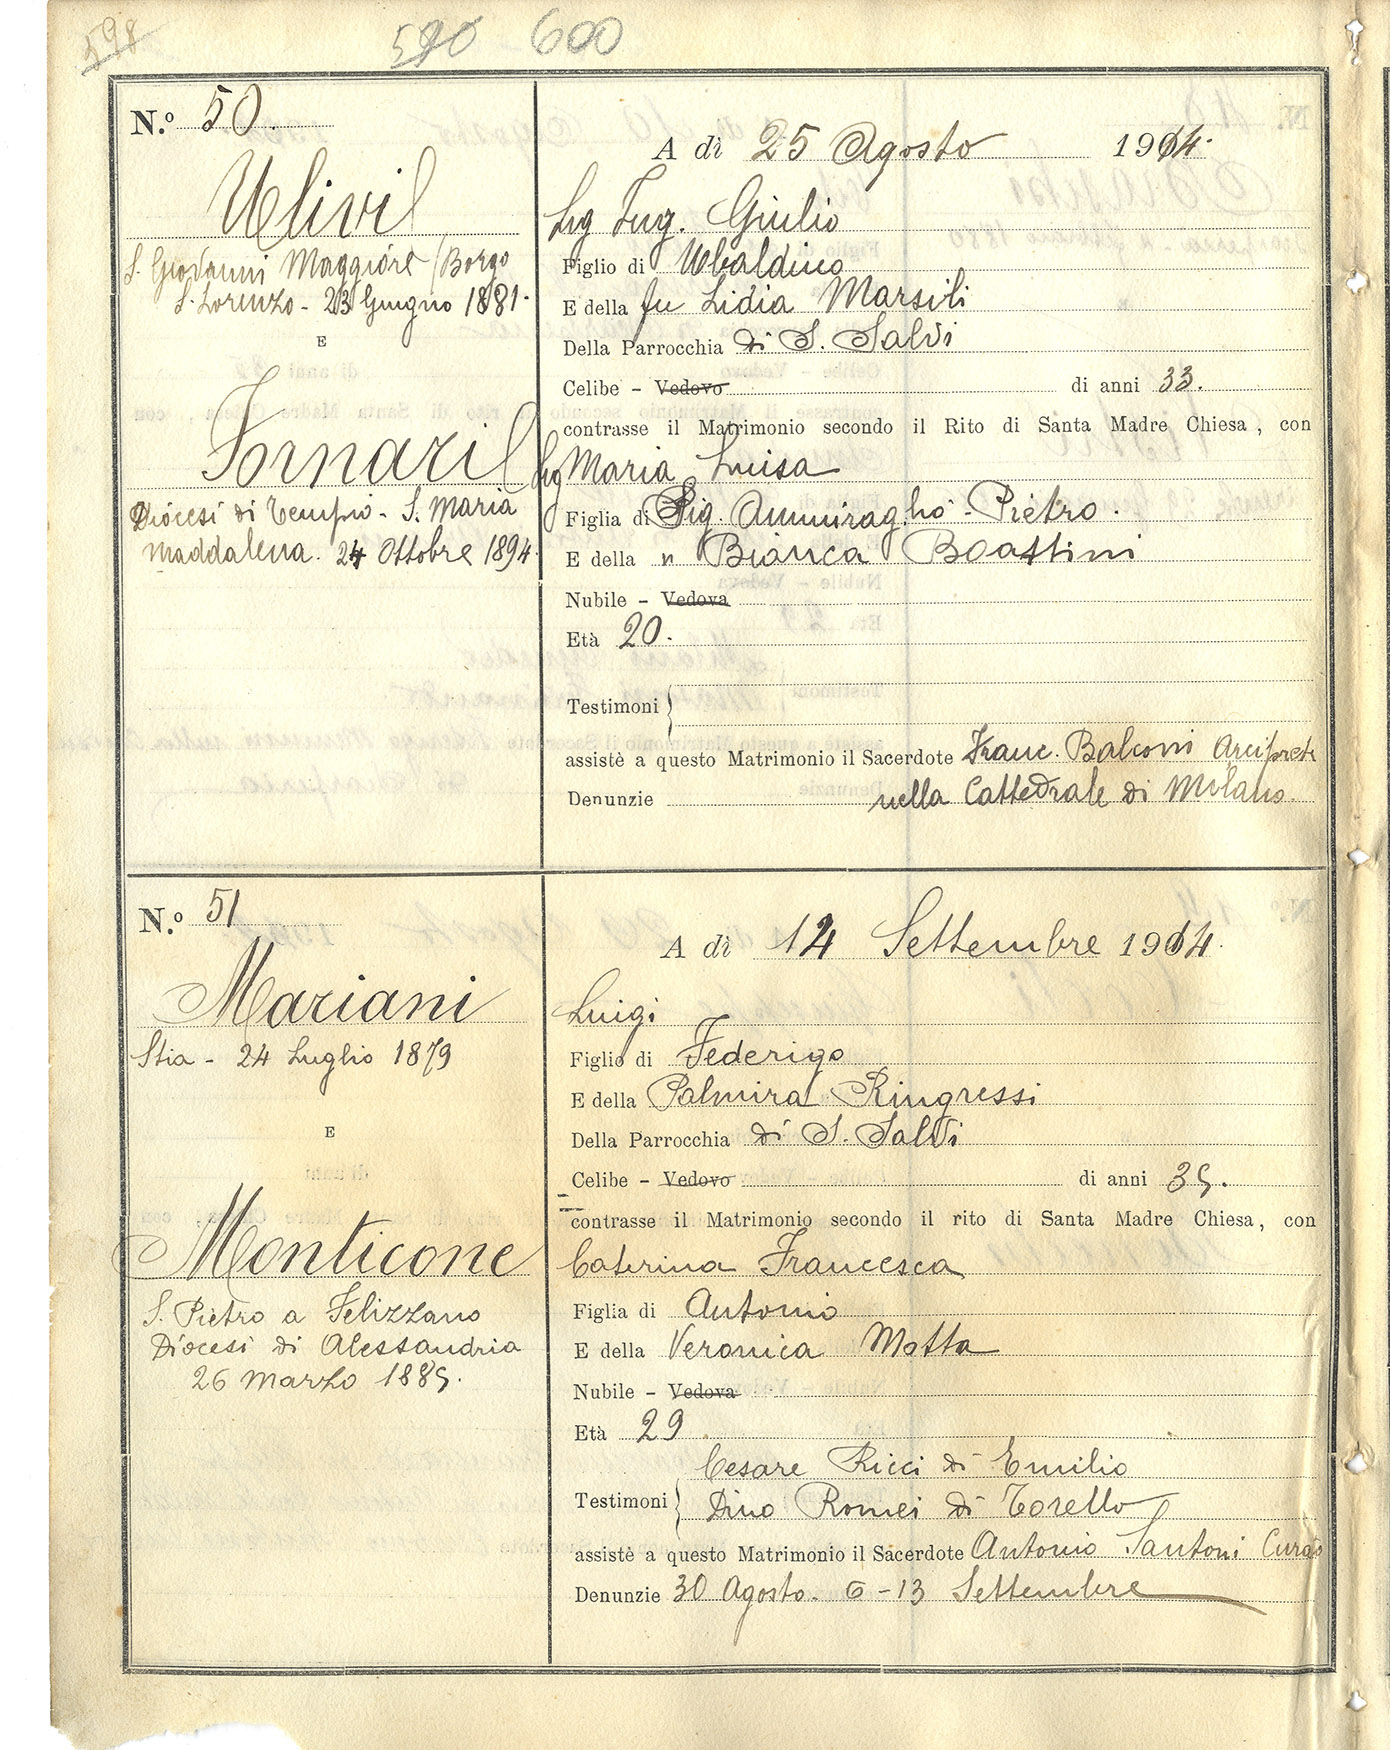 598
590 600
N.º 50.
Ulivi
S. Giovanni Maggiore (Borgo
S. Lorenzo - 23 Giugno 1881.
E
Fornari
Diocesi di Tempio - S. Maria
Maddalena. 24 Ottobre 1894.
A dì 25 Agosto 1914.
Sig Ing. Giulio
Figlio di Ubaldino
E della fu Lidia Marsili
Della Parrocchia di S. Salvi
Celibe – Vedovo di anni 33.
contrasse il Matrimonio secondo il Rito di Santa Madre Chiesa, con
Sig Maria Luisa
Figlia di Sig. Ammiraglio - Pietro.
E della " Bianca Boattini
Nubile – Vedova
Età 20.
Testimoni
assistè a questo Matrimonio il Sacerdote Franc. Balconi Arciprete
Denunzie nella Cattedrale di Milano.
N.º 51
Mariani
Stia - 24 Luglio 1879
E
Monticone
S. Pietro a Felizzano
Diocesi di Alessandria
26 Marzo 1885.
A dì 14 Settembre 1914.
Luigi
Figlio di Federigo
E della Palmira Ringressi
Della Parrocchia di S. Salvi
Celibe – Vedovo di anni 35.
contrasse il Matrimonio secondo il rito di Santa Madre Chiesa, con
Caterina Francesca
Figlia di Antonio
E della Veronica Motta
Nubile – Vedova
Età 29
Cesare Ricci di Emilio
Testimoni Dino Romei di Torello
assistè a questo Matrimonio il Sacerdote Antonio Santoni Curato
Denunzie 30 Agosto. 6 - 13 Settembre